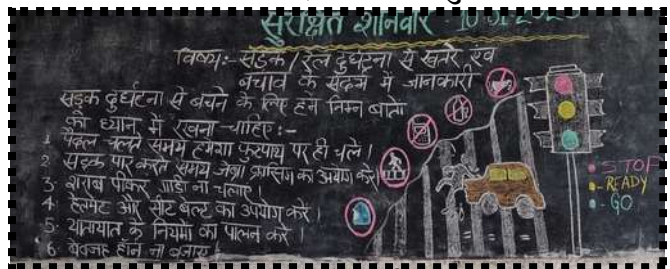 सुरक्षित शनिवार
विषय:- सड़क / रेल दुर्घटना से खतरे एवं
बचाव के संदर्भ में जानकारी
सड़क दुर्घटना से बचने के लिए हमें निम्न बातों
को ध्यान में रखना चाहिए:-
1 पैदल चलते समय हमेशा फुटपाथ पर ही चले।
2 सड़क पार करते समय जेब्रा क्रासिंग का उपयोग करें।
3. शराब पीकर गाडी ना चलाए।
4. हेलमेट और सीट बेल्ट का उपयोग करें।
5. यातायात के नियमों का पालन करें।
6. बेवजह हॉर्न ना बजाए।
STOP
- READY
- GO